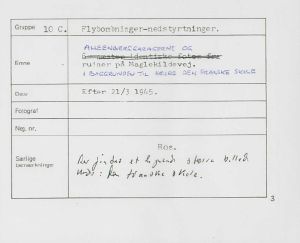 Gruppe 10 C. Flybombninger-nedstyrtninger.
ALLEENBERGGARAGERNE OG
Emne 6 næsten identiske fotos før
ruiner på Maglekildevej.
I BAGGRUNDEN TIL HØJRE DEN FRANSKE SKOLE
Dato Efter 21/3 1945.
Fotograf
Neg. nr.
Særlige
bemærkninger
Der findes et lignende større billede
under: Den franske skole.
3